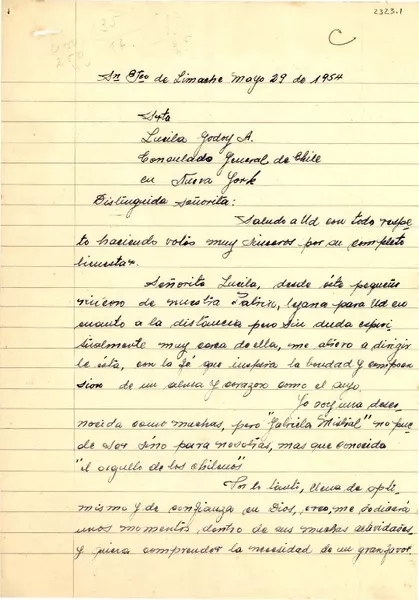 2323.1
C
Sn Fco de Limache Mayo 29 de 1954
Srta
Lucila Godoy A.
Consulado General de Chile
en Nueva York
Distinguida Señorita:
Saludo a Ud con todo respe
to haciendo votos muy sinceros por su completo
bienestar.
Señorita Lucila, desde éste pequeño
rincón de nuestra Patria, lejana para Ud en
cuanto a la distancia pero sin duda espiri
tualmente muy cerca de ella, me atrevo a dirigir
le ésta, con la fé que inspira la bondad y compren
sion de un alma y corazon como el suyo.
Yo soy una desco
nocida como muchas, pero "Gabriela Mistral" no pue
de ser sino para nosotras, mas que conocida
"el orgullo de los chilenos"
Por lo tanto, llena de opti
mismo y de confianza en Dios, creo, me dedicará
unos momentos, dentro de sus muchas actividades,
y quiera comprender la necesidad de un gran favor.